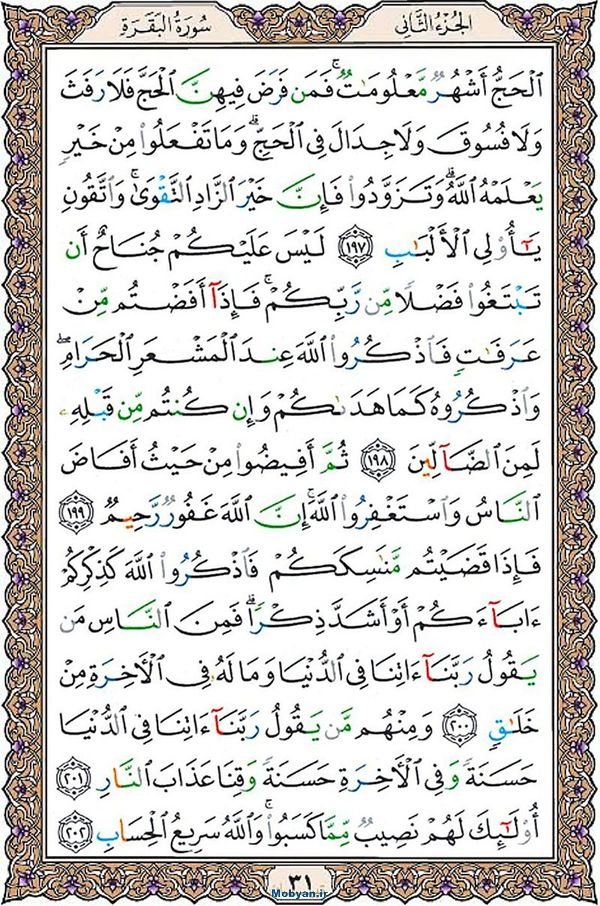 سُورَةُ البَقَرَةِ
الجُزْءُ الثَّانِي
ٱلْحَجُّ أَشْهُرٌ مَّعْلُومَـٰتٌ ۚ فَمَن فَرَضَ فِيهِنَّ ٱلْحَجَّ فَلَا رَفَثَ
وَلَا فُسُوقَ وَلَا جِدَالَ فِى ٱلْحَجِّ ۗ وَمَا تَفْعَلُوا۟ مِنْ خَيْرٍ
يَعْلَمْهُ ٱللَّهُ ۗ وَتَزَوَّدُوا۟ فَإِنَّ خَيْرَ ٱلزَّادِ ٱلتَّقْوَىٰ ۚ وَٱتَّقُونِ
يَـٰٓأُو۟لِى ٱلْأَلْبَـٰبِ ١٩٧ لَيْسَ عَلَيْكُمْ جُنَاحٌ أَن
تَبْتَغُوا۟ فَضْلًا مِّن رَّبِّكُمْ ۚ فَإِذَآ أَفَضْتُم مِّنْ
عَرَفَـٰتٍ فَٱذْكُرُوا۟ ٱللَّهَ عِندَ ٱلْمَشْعَرِ ٱلْحَرَامِ ۖ
وَٱذْكُرُوهُ كَمَا هَدَىٰكُمْ وَإِن كُنتُم مِّن قَبْلِهِۦ
لَمِنَ ٱلضَّآلِّينَ ١٩٨ ثُمَّ أَفِيضُوا۟ مِنْ حَيْثُ أَفَاضَ
ٱلنَّاسُ وَٱسْتَغْفِرُوا۟ ٱللَّهَ ۚ إِنَّ ٱللَّهَ غَفُورٌ رَّحِيمٌ ١٩٩
فَإِذَا قَضَيْتُم مَّنَـٰسِكَكُمْ فَٱذْكُرُوا۟ ٱللَّهَ كَذِكْرِكُمْ
ءَابَآءَكُمْ أَوْ أَشَدَّ ذِكْرًا ۗ فَمِنَ ٱلنَّاسِ مَن
يَقُولُ رَبَّنَآ ءَاتِنَا فِى ٱلدُّنْيَا وَمَا لَهُۥ فِى ٱلْـَٔاخِرَةِ مِنْ
خَلَـٰقٍ ٢٠٠ وَمِنْهُم مَّن يَقُولُ رَبَّنَآ ءَاتِنَا فِى ٱلدُّنْيَا
حَسَنَةً وَفِى ٱلْـَٔاخِرَةِ حَسَنَةً وَقِنَا عَذَابَ ٱلنَّارِ ٢٠١
أُو۟لَـٰٓئِكَ لَهُمْ نَصِيبٌ مِّمَّا كَسَبُوا۟ ۚ وَٱللَّهُ سَرِيعُ ٱلْحِسَابِ ٢٠٢
٣١
Mobyan.ir